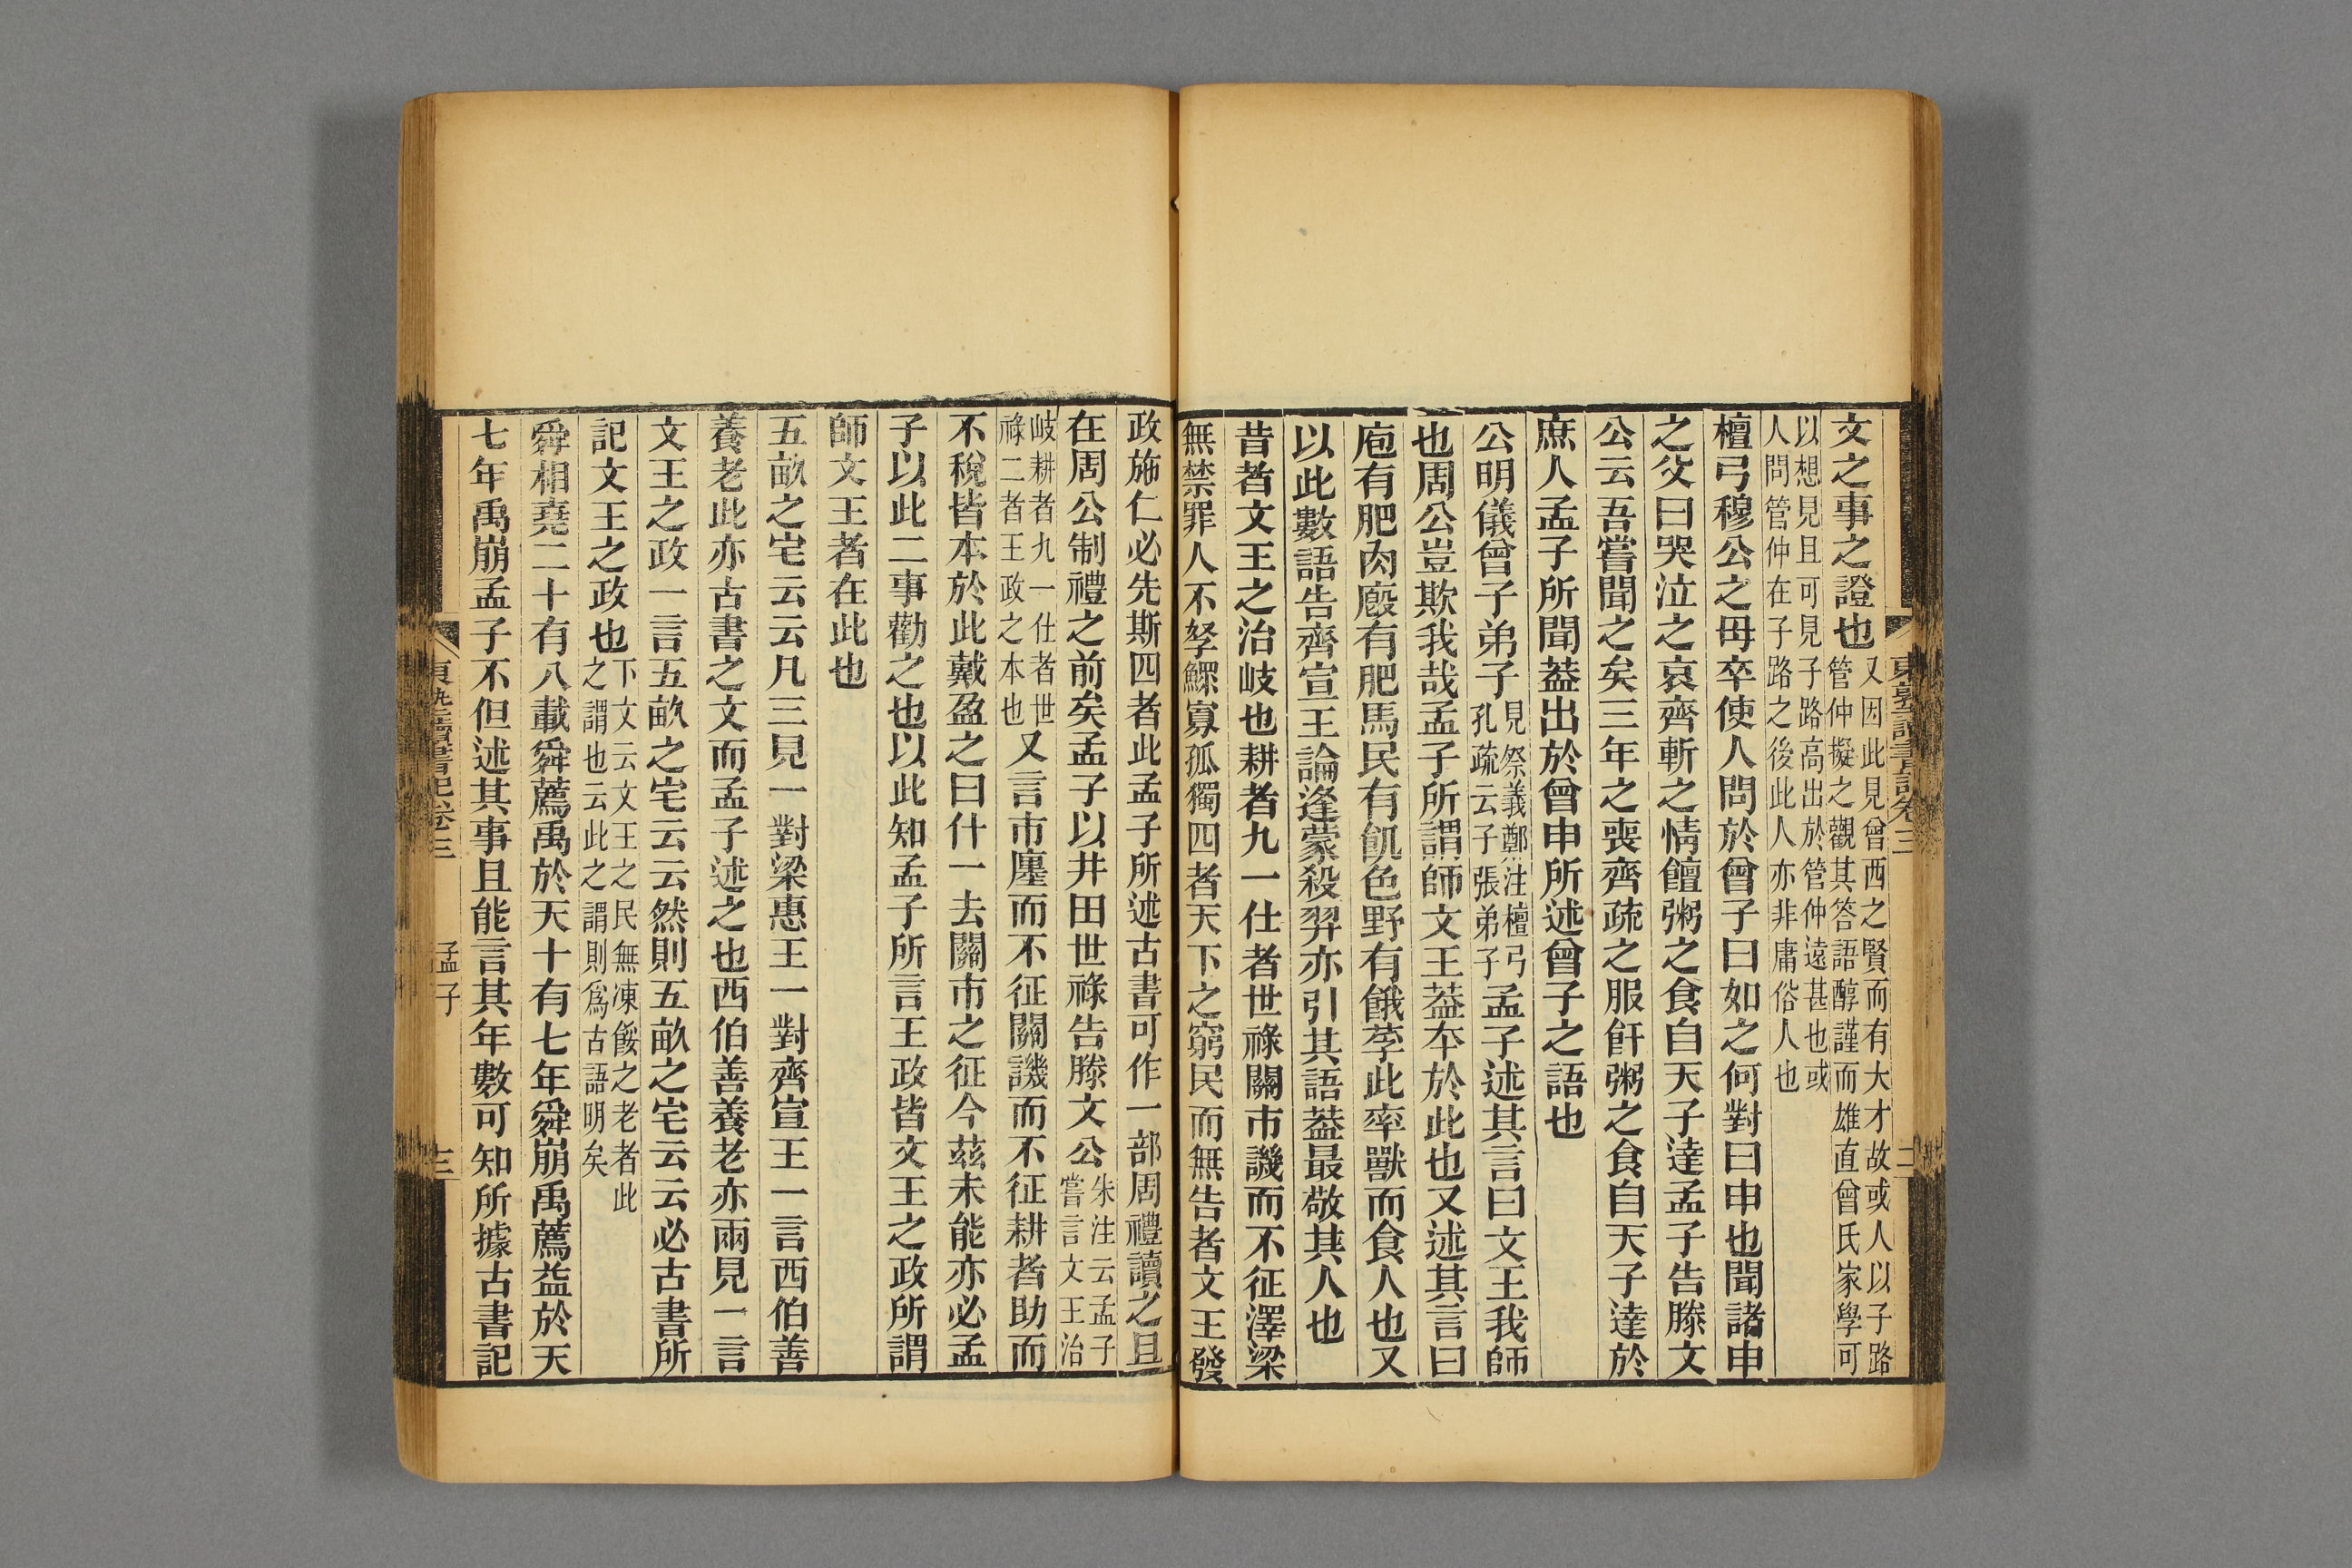 文之事之證也又因此見曾西之賢而有大才故或人以子路
管仲擬之觀其答語醇謹而雄直曾氏家學可
以想見且可見子路高出於管仲遠甚也或
人問管仲在子路之後此人亦非庸俗人也
檀弓穆公之母卒使人問於曾子曰如之何對曰申也聞諸申
之父曰哭泣之哀齊斬之情饘粥之食自天子達孟子告滕文
公云吾嘗聞之矣三年之喪齊疏之服飦粥之食自天子達於
庶人孟子所聞葢出於曾申所述曾子之語也
公明儀曾子弟子見祭義鄭注檀弓
孔疏云子張弟子孟子述其言曰文王我師
也周公豈欺我哉孟子所謂師文王葢夲於此也又述其言曰
庖有肥肉廏有肥馬民有飢色野有餓莩此率獸而食人也又
以此數語告齊宣王論逄蒙殺羿亦引其語葢最敬其人也
昔者文王之治岐也耕者九一仕者世祿關市譏而不征澤梁
無禁罪人不孥鰥寡孤獨四者天下之窮民而無告者文王發
政施仁必先斯四者此孟子所述古書可作一部周禮讀之且
在周公制禮之前矣孟子以井田世祿告滕文公朱注云孟子
嘗言文王治
岐耕者九一仕者世
祿二者王政之本也又言市廛而不征關譏而不征耕者助而
不稅皆本於此戴盈之曰什一去關市之征今茲未能亦必孟
子以此二事勸之也以此知孟子所言王政皆文王之政所謂
師文王者在此也
五畝之宅云云凡三見一對梁惠王一對齊宣王一言西伯善
養老此亦古書之文而孟子述之也西伯善養老亦兩見一言
文王之政一言五畝之宅云云然則五畝之宅云云必古書所
記文王之政也下文云文王之民無凍餒之老者此
之謂也云此之謂則爲古語明矣
舜相堯二十有八載舜薦禹於天十有七年舜崩禹薦益於天
七年禹崩孟子不但述其事且能言其年數可知所據古書記
東塾讀書記卷三
二
東塾讀書記卷三
孟子
三